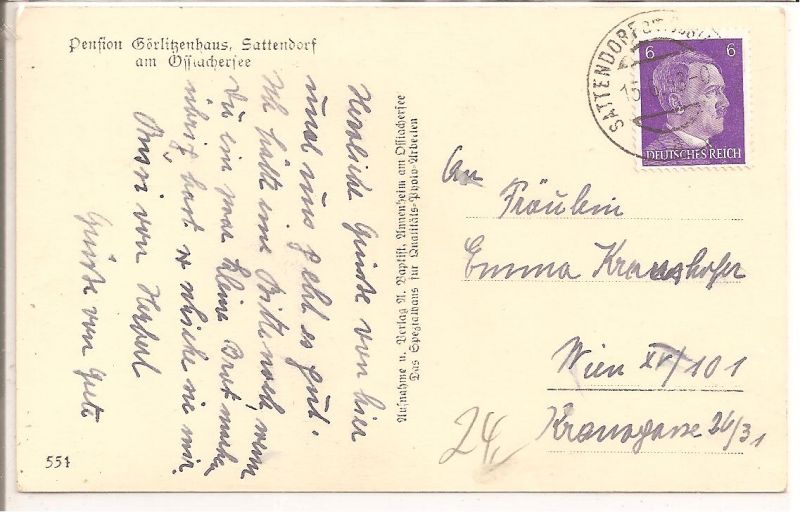 Pension Görlitzenhaus, Sattendorf
am Ossiachersee
Herzliche Grüße von hier
und uns geht es gut.
Ich hätte eine Bitte noch, wenn
Du ein paar kleine Brotmarken
übrig hast so schicke sie mir.
von Herbert
Grüße von Gute
Aufnahme u. Verlag A. Baptist, Annenheim am Ossiachersee
Das Spezialhaus für Qualitäts-Photo-Arbeiten
SATTENDORF
6 6
DEUTSCHES REICH
An
Fräulein
Emma Kraushofer
Wien XV/101
Kranzgasse 24/31
24.
551